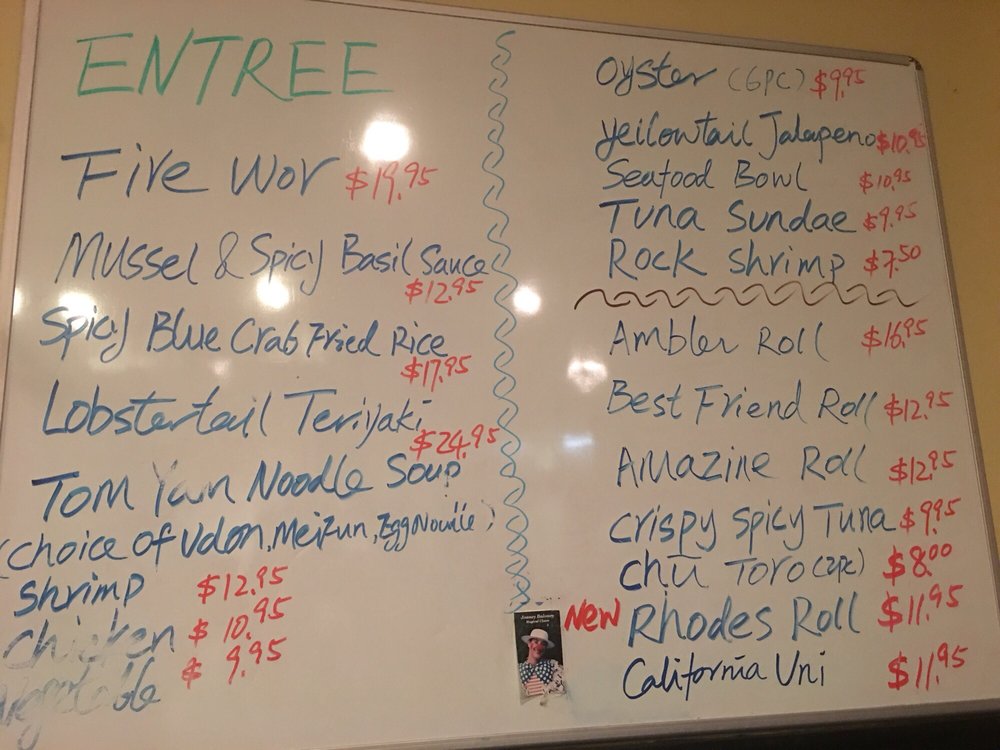 ENTREE
Fire Wor $19.95
Mussel & Spicy Basil Sauce
$12.95
Spicy Blue Crab Fried Rice
$17.95
Lobstertail Teriyaki
$24.95
Tom Yam Noodle Soup
(choice of Udon, Meifun, Egg Noodle)
Shrimp $12.95
Chicken $10.95
Vegetable $9.95
Oyster (6PC) $9.95
Yellowtail Jalapeno $10.95
Seafood Bowl $10.95
Tuna Sundae $9.95
Rock Shrimp $7.50
Ambler Roll $16.95
Best Friend Roll $12.95
Amazine Roll $12.95
Crispy Spicy Tuna $9.95
Chū Toro (2pc) $8.00
New Rhodes Roll $11.95
California Uni $11.95